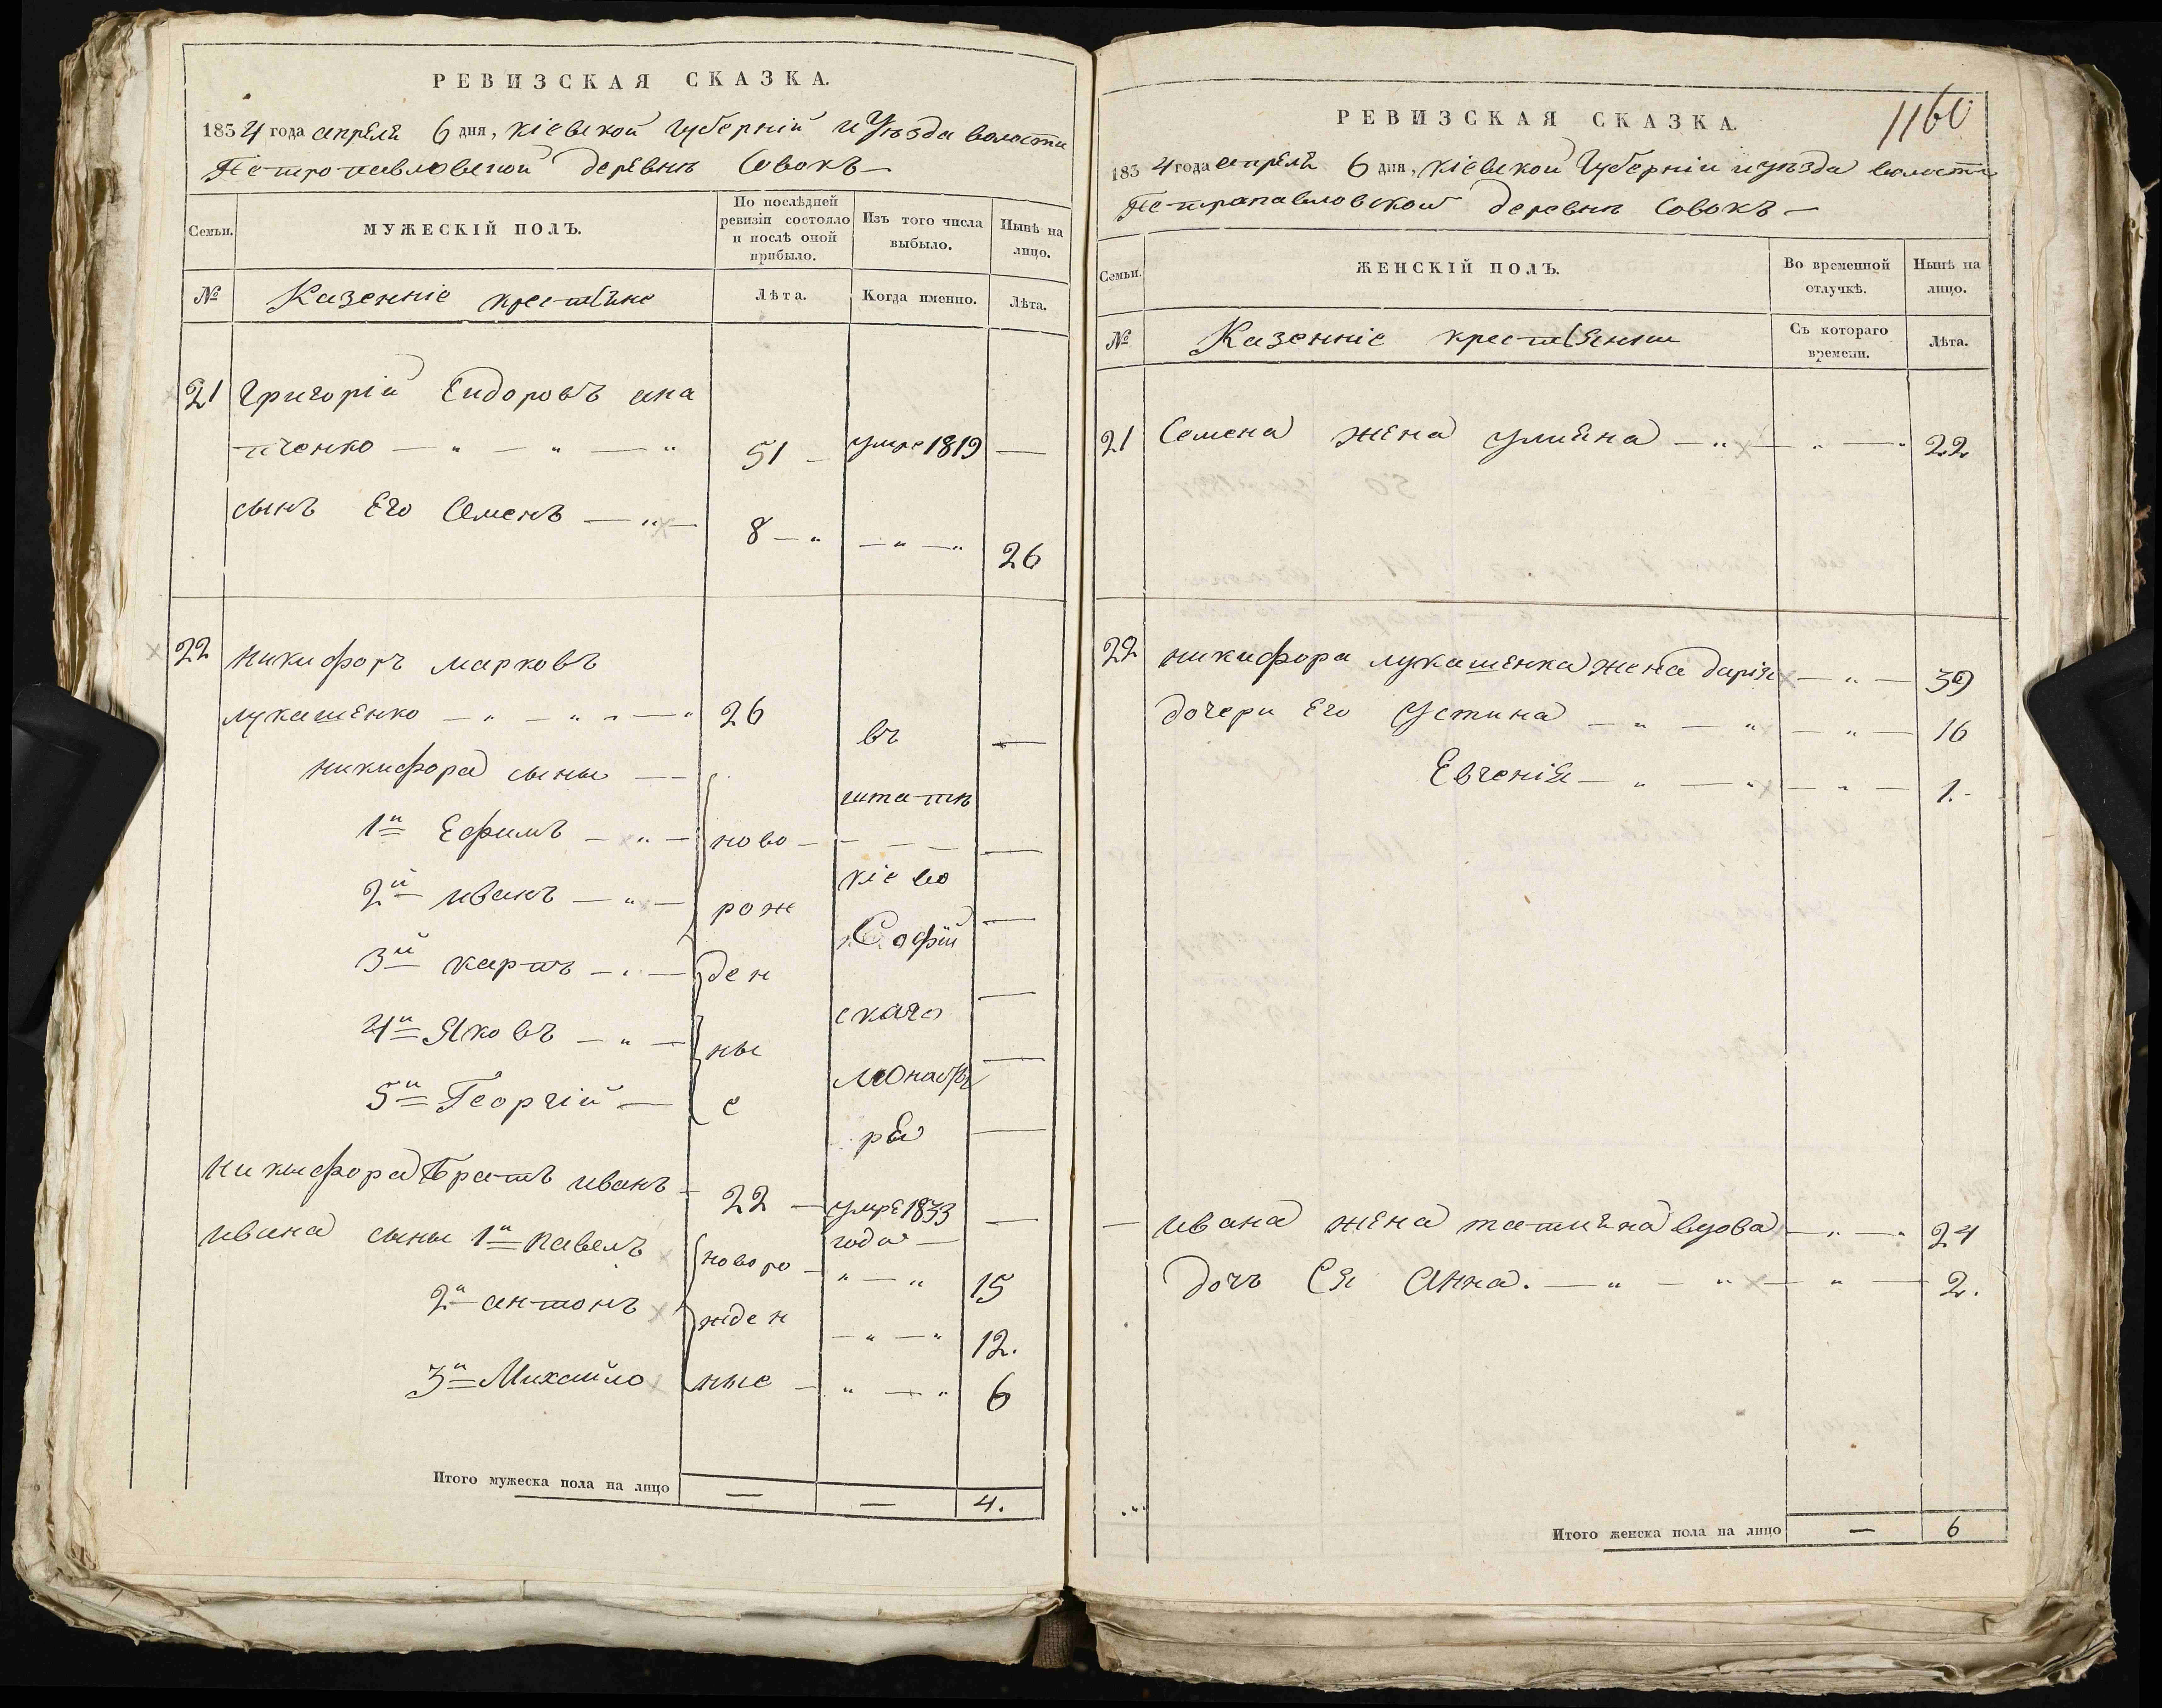 РЕВИЗСКАЯ СКАЗКА.
1834 года апреля 6 дня, кіевской губерній и уѣзда волости
Петропавловской деревнѣ Совокъ—
Семьи.
МУЖЕСКІЙ ПОЛЪ.
По послѣдней ревизіи состояло и послѣ оной прибыло.
Изъ того числа выбыло.
Нынѣ на лицо.
№
Казенніе крестьяне
Лѣта.
Когда именно.
Лѣта.
21 Григорій Сидоровъ ана
пченко — " — " — " 51 — умре 1819 —
сынъ Его Семенъ — " — 8 — " — " — " 26
22 Никифоръ марковъ
лукашенко — " — " — " 26 въ —
никифора сыны —
штатѣ
1й Ефимъ — " — ново — —
кіево
2й иванъ — " — рож —
Софій
3й карпъ — " — ден —
скаго
4й Яковъ — " — ны —
монасты
5й Георгій — е
рѣ —
никифора братъ иванъ — 22 — умре 1833 —
года —
ивана сыны 1й павелъ новоро — " — " 15
2й антонъ жден — " — " 12.
3й Михайло ные — " — " 6
Итого мужеска пола на лицо — — 4.
1160
РЕВИЗСКАЯ СКАЗКА.
1834 года апреля 6 дня, кіевской губерніи и уѣзда волости
Петрапавловской деревнѣ Совокъ —
Семьи.
ЖЕНСКІЙ ПОЛЪ.
Во временной отлучкѣ.
Нынѣ на лицо.
№
Казенніе крестьянки
Съ котораго времени.
Лѣта.
21 Семена жена улияна — " — " — " 22
22 никифора лукашенка жена дарія — " — 39
дочери Его Устина — " — " — " — 16
Евгенія — " — " — " — 1.
— ивана жена татияна вдова — " — " 24
дочъ Ея Анна. — " — " — " — 2.
Итого женска пола на лицо — 6